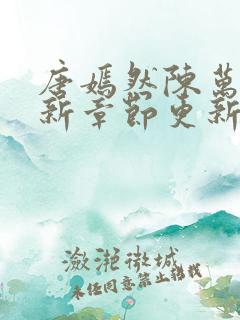 唐嫣然陳萬
新章節更新
瀲滟微城
未经同意禁止转载